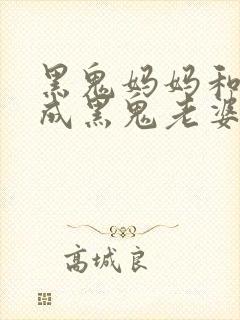 黑鬼妈妈和
成黑鬼老婆
高城良